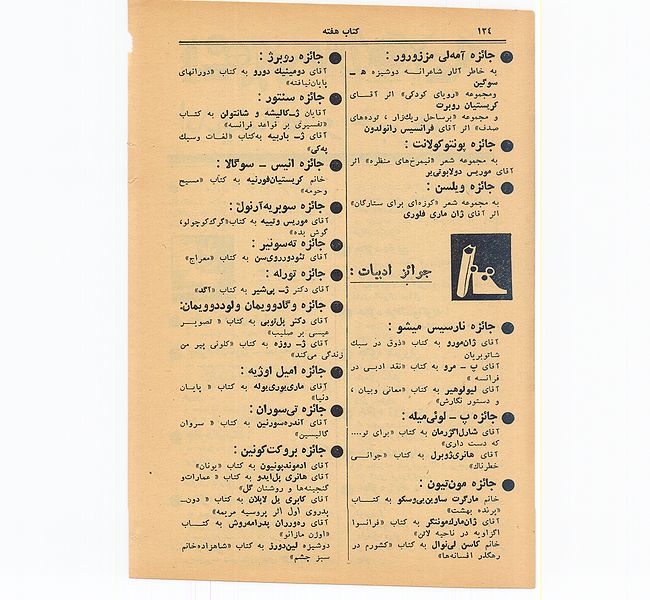 ۱۳۴
کتاب هفته
جائزه آمه‌لی مززورور :
به خاطر آثار شاعرانه دوشیزه ه ـ
سوگین
ومجموعه «رویای کودکی» اثر آقای
کریستیان روبرت
و مجموعه «برساحل ریگ‌زار ، توده‌های
صدف» اثر آقای فرانسیس رانولدون
جائزه پونتوکولانت :
به مجموعه شعر «نیمرخ‌های منظره» اثر
آقای موریس دولابونی‌یر
جائزه ویلسن :
به مجموعه شعر «کوزه‌ای برای ستارگان»
اثر آقای ژان ماری فلوری
جوائز ادبیات :
جائزه نارسیس میشو :
آقای ژان‌مورو به کتاب «ذوق در سبك
شاتوبریان
آقای پ ـ مرو به کتاب «نقد ادبی در
فرانسه»
آقای لیولوهیر به کتاب «معانی وبیان ،
و دستور نگارش»
جائزه پ ـ لوئی‌میله :
آقای شارل‌اگزرمان به کتاب «برای تو....
که دست داری»
آقای هانری‌ژوبرل به کتاب «جوانی
خطرناك»
جائزه مون‌تیون :
خانم مارگرت ساوین‌بی‌وسکو به کتاب
«پرنده بهشت»
آقای ژان‌مارك‌مونتگر به کتاب «فرانسوا
اگزاویه در ناحیه لاتن»
خانم کاسن لی‌نوال به کتاب «کشورم در
رهگذر افسانه‌ها»
جائزه روبرژ :
آقای دومینیك دورو به کتاب «دورانهای
پایان‌نیافته»
جائزه سنتور :
آقایان ژ‌ـ‌کالیشه و شانتولن به کتاب
«تفسیری بر قواعد فرانسه»
آقای ژ‌ـ باربیه به‌کتاب «لغات وسبك
په‌گی»
جائزه انیس ـ سوگالا :
خانم کریستیان‌فورنیه به کتاب «مسیح
وحومه»
جائزه سوبریه‌آرنول :
آقای موریس ونییه به کتاب«گرگ‌کوچولو،
گوش بده»
جائزه ته‌سونیر :
آقای تئودورروی‌سن به کتاب «معراج»
جائزه تورله :
آقای دکتر ژ‌ـ بی‌شیر به کتاب «آگد»
جائزه وگادوویمان ولوددوویمان:
آقای دکتر پل‌نوبی به کتاب « تصویر
عیسی بر صلیب»
آقای ژ‌ـ روزه به کتاب «کلونی پیر من
زندگی می‌کند»
جائزه امیل اوژیه :
آقای ماری‌بوری‌بوله به کتاب « پایان
دنیا»
جائزه تی‌سوران :
آقای آندره‌سورنین به کتاب « سروان
گالیسین»
جائزه بروکت‌گونین :
آقای ادموندبونیون به کتاب «یونان»
آقای هانری پل‌ایدو به کتاب « عمارات‌و
گنجینه‌ها و روشنان گل»
آقای کابری پل لابلان به کتاب « دون‌ـ
پدروی اول اثر پروسیه مریمه»
آقای ره‌ورران پدرامه‌روش به کتاب
«اوژن مازانو»
دوشیزه لین‌دورز به کتاب «شاهزاده‌خانم
سبز چشم»